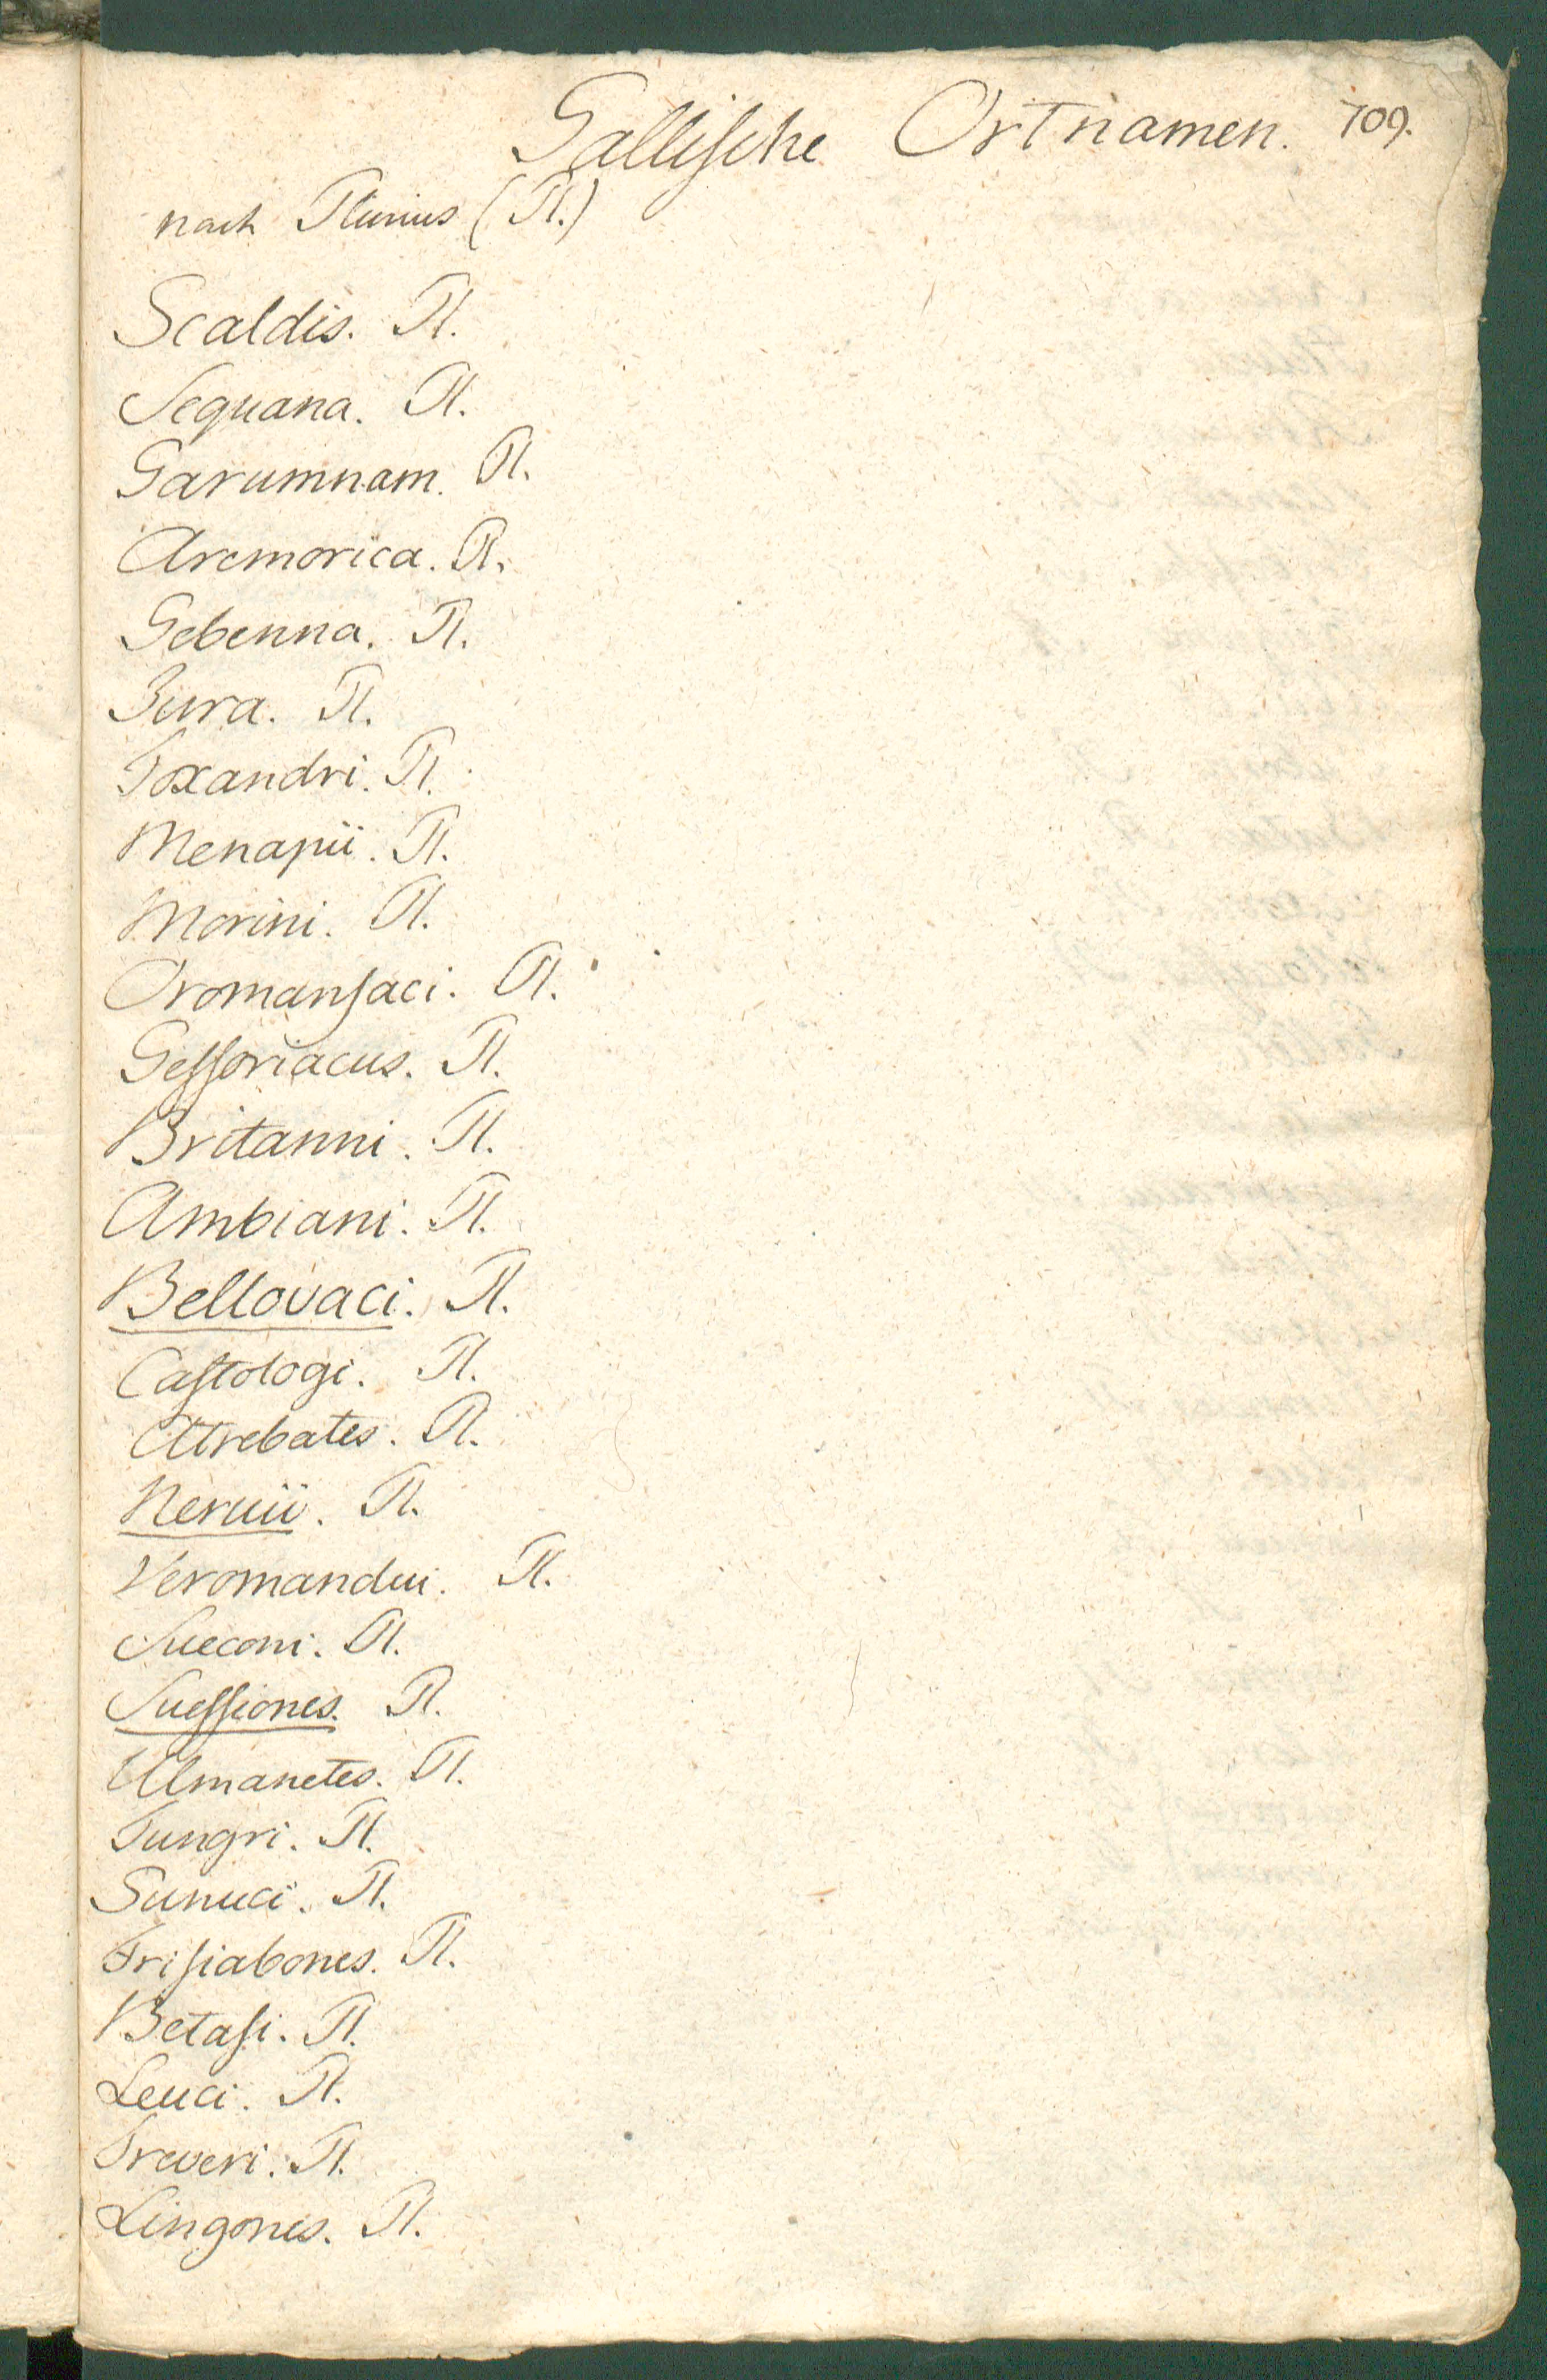 Gallische Ortnamen. 709.
nach Plinius (Pl.)
Scaldis. Pl.
Sequana. Pl.
Garumnam. Pl.
Aremorica. Pl.
Gebenna. Pl.
Jura. Pl.
Toxandri. Pl.
Menapii. Pl.
Morini. Pl.
Oromansaci. Pl.
Gessoriacus. Pl.
Britanni. Pl.
Ambiani. Pl.
Bellovaci. Pl.
Castologi. Pl.
Atrebates. Pl.
Neruii. Pl.
Veromandui. Pl.
Sueconi. Pl.
Suessiones. Pl.
Ulmanetes. Pl.
Tungri. Pl.
Sunuci. Pl.
Frisiabones. Pl.
Betasi. Pl.
Leuci. Pl.
Treveri. Pl.
Lingones. Pl.